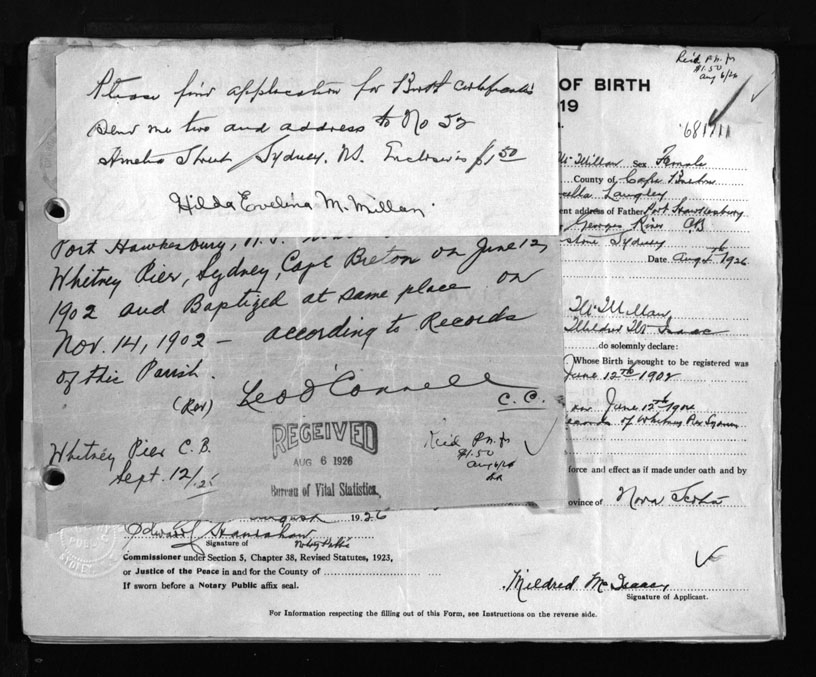 Please find application for Birth certificate
send me two and address to No 52
Amelia Street Sydney. N.S. Enclosed is $1.50
Hilda Evelina McMillan.
Port Hawkesbury, N.S.
Whitney Pier, Sydney, Cape Breton on June 12,
1902 and Baptized at same place on
Nov. 14, 1902 — according to Records
of this Parish.
(Rev) Leo J O'Connell
C. C.
Whitney Pier C. B.
Sept. 12/25
RECEIVED
AUG 6 1926
Bureau of Vital Statistics,
$1.50
Aug 6/26
$1.50
Aug 6/26
OF BIRTH
19
681711
McMillan Sex Female
County of Cape Breton
Langley
ent address of Father Port Hawkesbury
Georges River C.B.
Sydney
Date Aug 1926
McMillan
Mildred McIsaac
do solemnly declare:
Whose Birth is sought to be registered was
June 12th 1902
on June 12th 1902
records of Whitney Pier Sydney
force and effect as if made under oath and by
ovince of Nova Scotia
August 1926
Signature of Notary Public
Commissioner under Section 5, Chapter 38, Revised Statutes, 1923,
or Justice of the Peace in and for the County of
If sworn before a Notary Public affix seal.
Mildred McIsaac
Signature of Applicant.
For Information respecting the filling out of this Form, see Instructions on the reverse side.